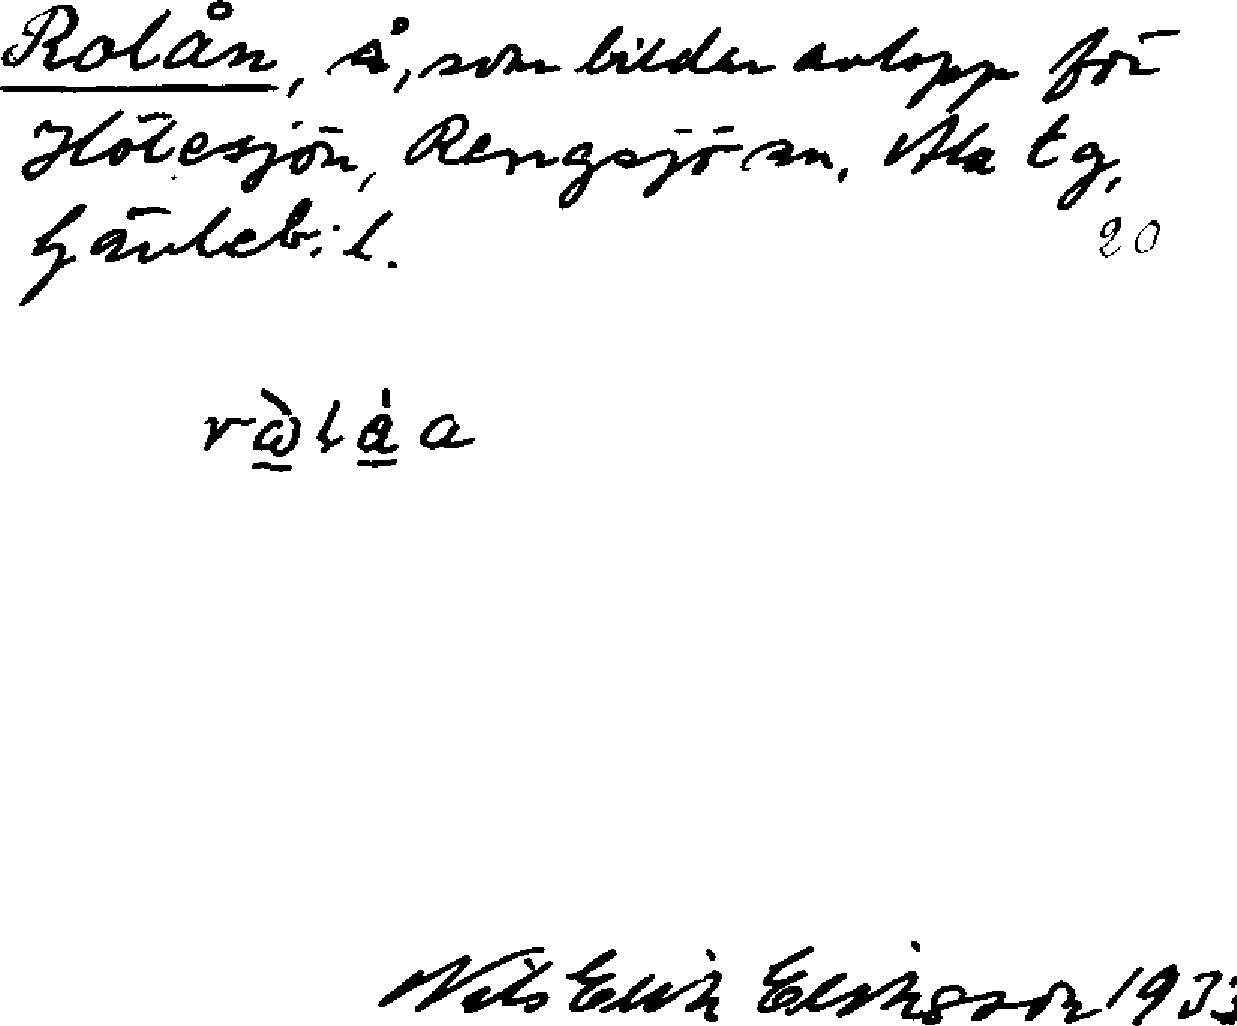 Rolån, å, som bildar avlopp för
Hölesjön, Rengsjö sn, Ala tg,
Gävleb:s l.
20
Nils Erik Eriksson 1933